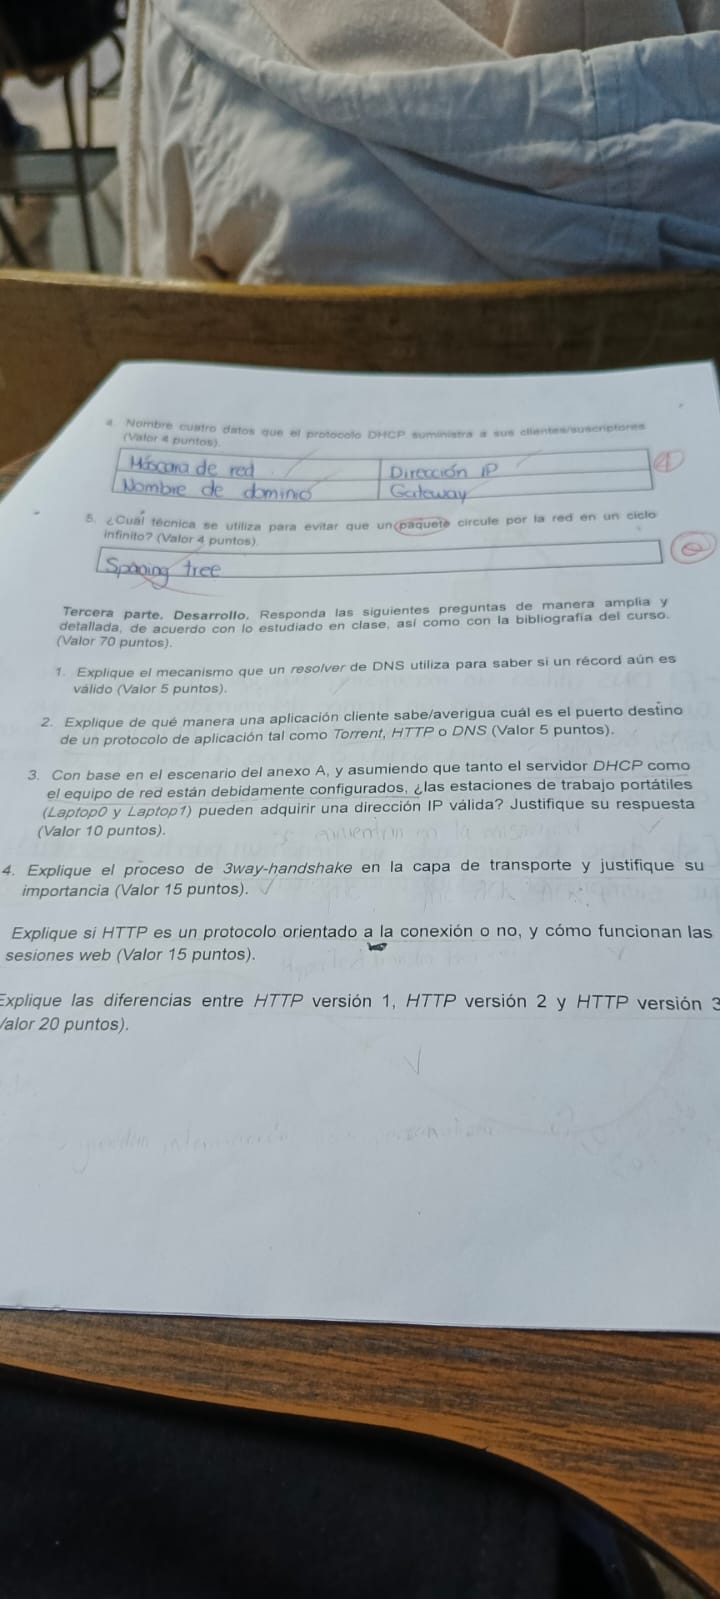 4. Nombre cuatro datos que el protocolo DHCP suministra a sus clientes/suscriptores
(Valor 4 puntos).
Máscara de red Dirección IP 4
Nombre de dominio Gateway
5. ¿Cuál técnica se utiliza para evitar que un paquete circule por la red en un ciclo
infinito? (Valor 4 puntos).
tree
Tercera parte. Desarrollo. Responda las siguientes preguntas de manera amplia y
detallada, de acuerdo con lo estudiado en clase, así como con la bibliografía del curso.
(Valor 70 puntos).
1. Explique el mecanismo que un resolver de DNS utiliza para saber si un récord aún es
válido (Valor 5 puntos).
2. Explique de qué manera una aplicación cliente sabe/averigua cuál es el puerto destino
de un protocolo de aplicación tal como Torrent, HTTP o DNS (Valor 5 puntos).
3. Con base en el escenario del anexo A, y asumiendo que tanto el servidor DHCP como
el equipo de red están debidamente configurados, ¿las estaciones de trabajo portátiles
(Laptop0 y Laptop1) pueden adquirir una dirección IP válida? Justifique su respuesta
(Valor 10 puntos).
4. Explique el proceso de 3way-handshake en la capa de transporte y justifique su
importancia (Valor 15 puntos).
Explique si HTTP es un protocolo orientado a la conexión o no, y cómo funcionan las
sesiones web (Valor 15 puntos).
Explique las diferencias entre HTTP versión 1, HTTP versión 2 y HTTP versión 3
Valor 20 puntos).